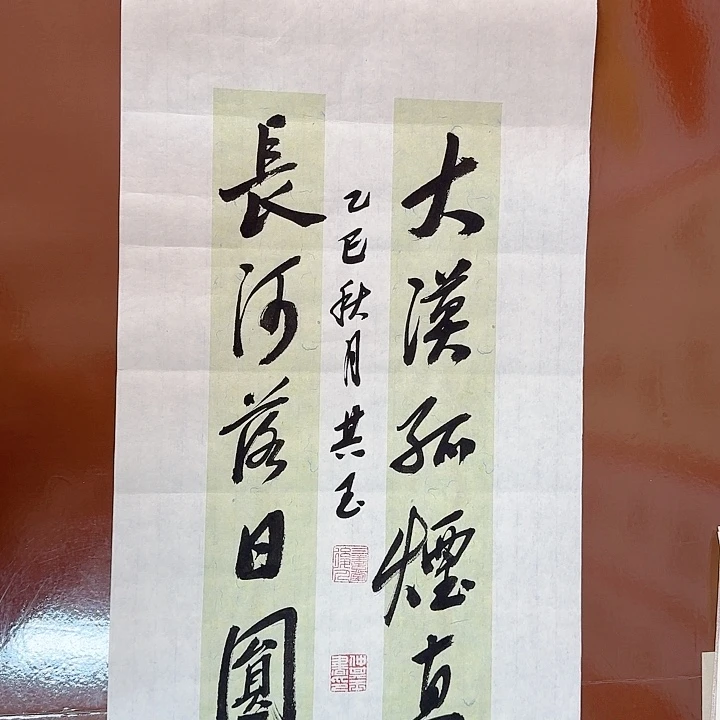 大漠孤煙直
長河落日圓
乙巳秋月共玉